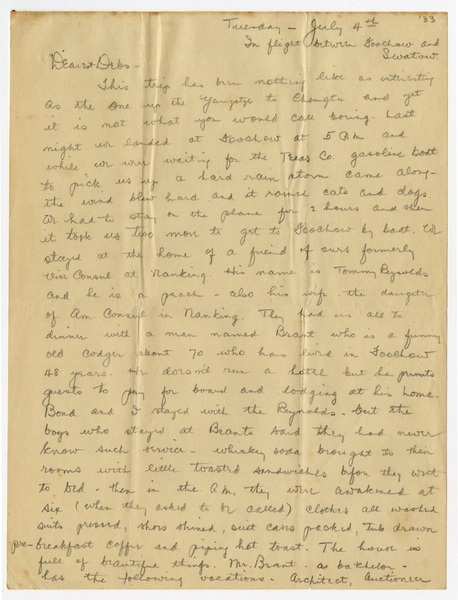 Tuesday - July 4th '33
In flight between Foochow and
Swatow
Dearest Debs -
This trip has been nothing like as interesting
as the one up the Yangtze to Chengtu and yet
it is not what you would call boring. Last
night we landed at Foochow at 5 P.M. and
while we were waiting for the Texas Co. gasoline boat
to pick us up a hard rain storm came along -
the wind blew hard and it rained cats and dogs
We had to stay on the plane for 2 hours and then
it took us two more to get to Foochow by boat. We
stayed at the home of a friend of ours formerly
Vice Consul at Nanking. His name is Tommy Reynolds
and he is a peach - also his wife - the daughter
of Am Consul in Nanking. They had us all to
dinner with a man named Brant who is a funny
old codger about 70 who has lived in Foochow
48 years. He doesn't run a hotel but he permits
guests to pay for board and lodging at his home.
Bond and I stayed with the Reynolds - but the
boys who stayed at Brants said they had never
know such service - whiskey soda brought to their
rooms with little toasted sandwiches before they went
to bed - then in the A.M. they were awakened at
six (when they asked to be called) clothes all washed
suits pressed, shoes shined, suit cases packed, tub drawn
pre-breakfast coffee and piping hot toast. The house is
full of beautiful things. Mr. Brant - a bachelor -
has the following vocations - Architect, Auctioneer